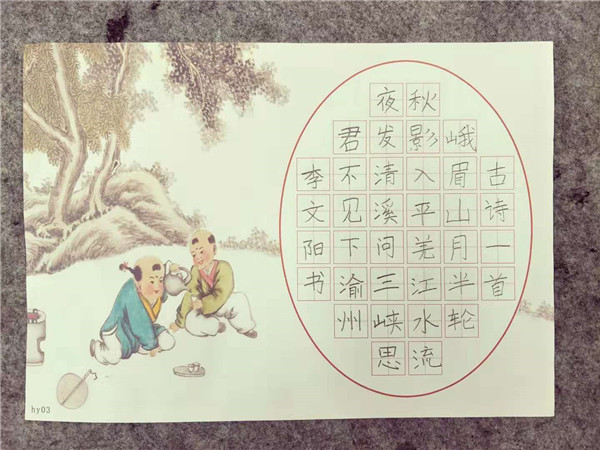 古诗一首
峨眉山月半轮
秋影入平羌江水流
夜发清溪问三峡思
君不见下渝州
李文阳书
hy03